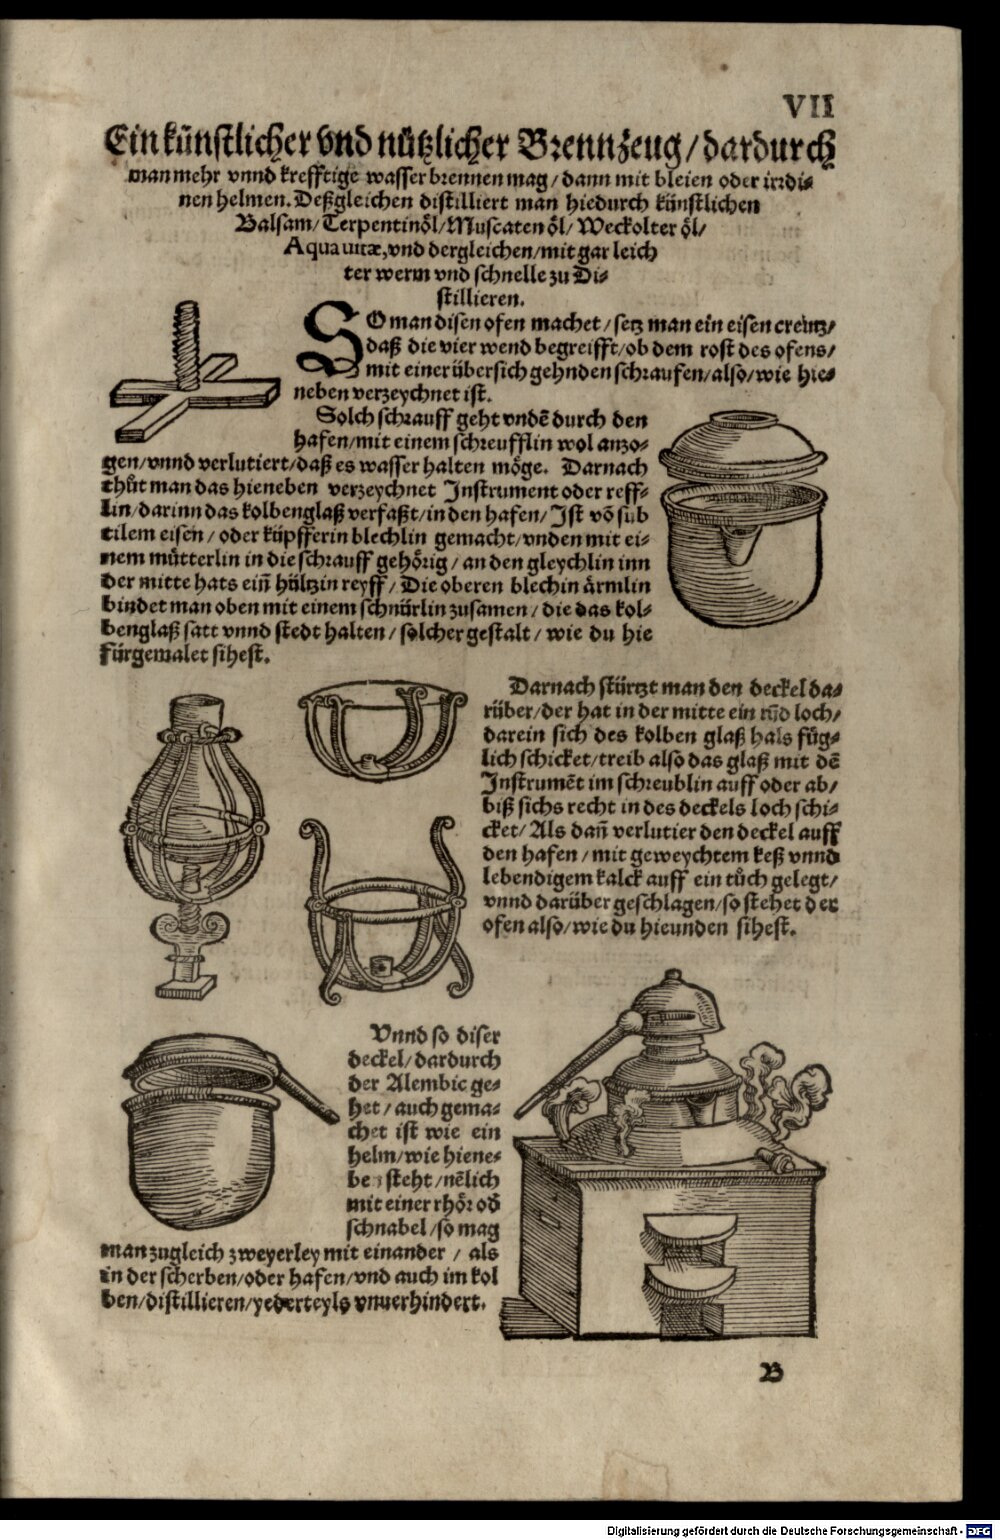 VII
Ein künstlicher vnd nützlicher Brennzeug/dardurch
man mehr vnnd krefftige wasser brennen mag/dann mit bleien oder irrdi-
nen helmen. Deßgleichen distilliert man hiedurch künstlichen
Balsam/Terpentinöl/Muscaten öl/Weckolter öl/
Aqua vitæ, vnd dergleichen/mit gar leich
ter werm vnd schnelle zu Di-
stillieren.
SO man disen ofen machet/setz man ein eisen creütz/
daß die vier wend begreifft/ob dem rost des ofens/
mit einer übersich gehnden schraufen/also/wie hie-
neben verzeychnet ist.
Solch schrauff geht vndē durch den
hafen/mit einem schreufflin wol anzo-
gen/vnnd verlutiert/daß es wasser halten möge. Darnach
thůt man das hieneben verzeychnet Instrument oder reff-
lin/darinn das kolbenglaß verfaßt/in den hafen/Ist vō sub
tilem eisen/oder küpfferin blechlin gemacht/vnden mit ei-
nem mütterlin in die schrauff gehörig/an den gleychlin inn
der mitte hats ein̄ hültzin reyff/Die oberen blechin ärmlin
bindet man oben mit einem schnürlin zusamen/die das kol-
benglaß satt vnnd stedt halten/solcher gestalt/wie du hie
fürgemalet sihest.
Darnach stürtzt man den deckel da-
rüber/der hat in der mitte ein rūd loch/
darein sich des kolben glaß hals füg-
lich schicket/treib also das glaß mit dē
Instrumēt im schreublin auff oder ab/
biß sichs recht in des deckels loch schi-
cket/Als dan̄ verlutier den deckel auff
den hafen/mit geweychtem keß vnnd
lebendigem kalck auff ein tůch gelegt/
vnnd darüber geschlagen/so stehet der
ofen also/wie du hieunden sihest.
Vnnd so diser
deckel/dardurch
der Alembic ge-
het/auch gema-
chet ist wie ein
helm/wie hiene-
ben steht/nēlich
mit einer rhör od̄
schnabel/so mag
man zugleich zweyerley mit einander/als
in der scherben/oder hafen/vnd auch im kol
ben/distillieren/yederteyls vnuerhindert.
B
Digitalisierung gefördert durch die Deutsche Forschungsgemeinschaft - DFG